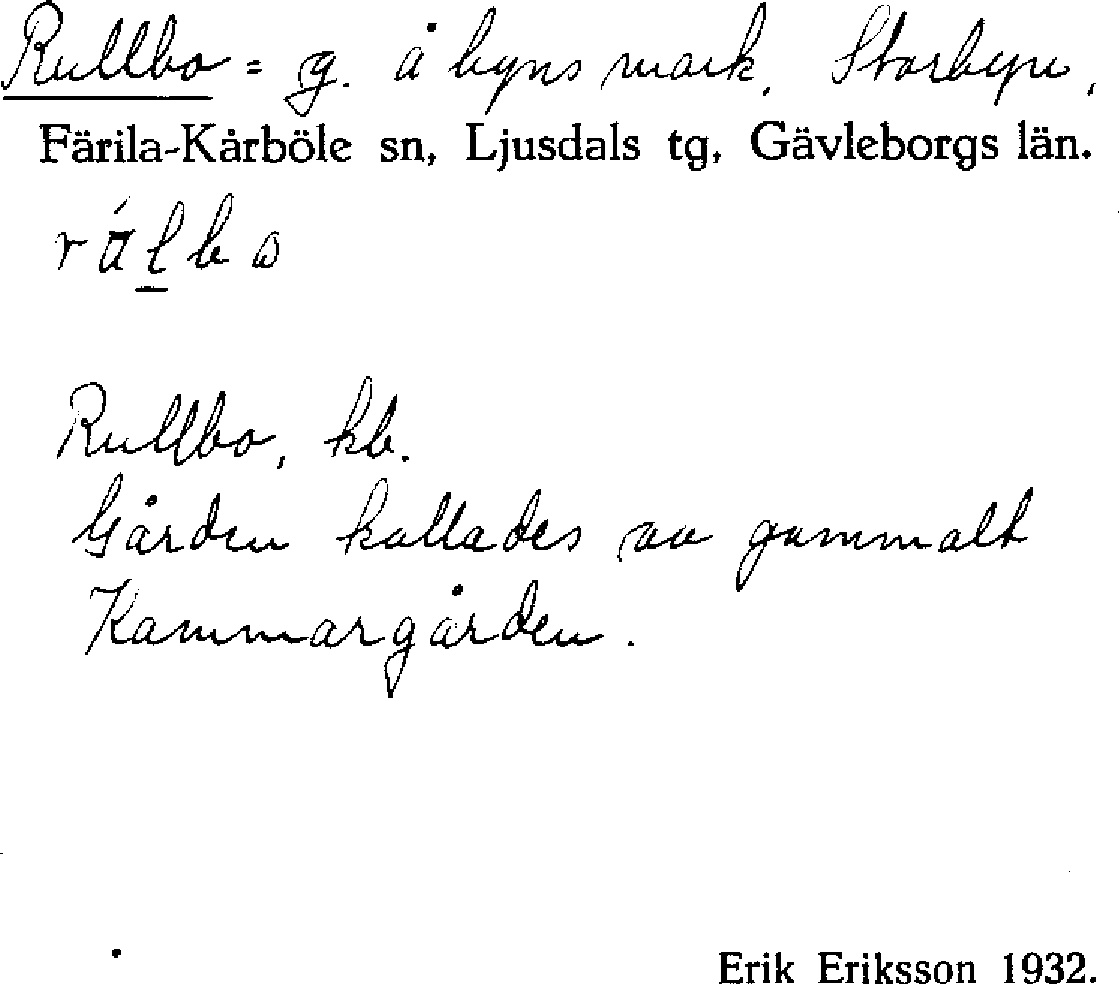 Rullbo = g. å byns mark, Storbyn,
Färila-Kårböle sn, Ljusdals tg, Gävleborgs län.
Rullbo, kb.
Gården kallades av gammalt
Kammargården.
Erik Eriksson 1932.